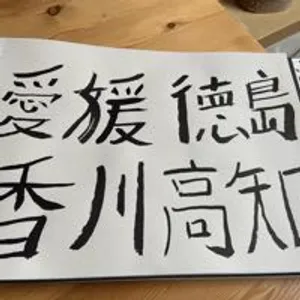 愛媛 徳島
香川 高知